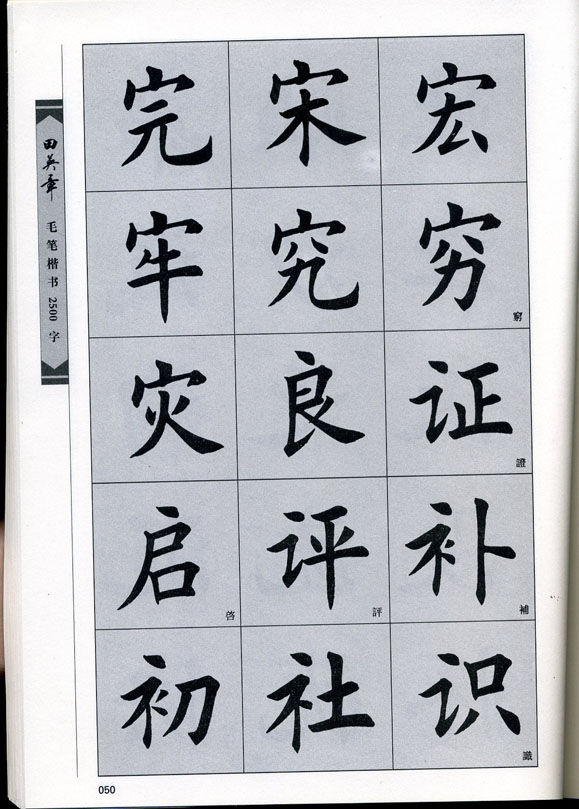 田英章 毛笔楷书 2500 字
完 宋 宏
牢 究 穷 窮
灾 良 证 證
启 啓 评 評 补 補
初 社 识 識
050